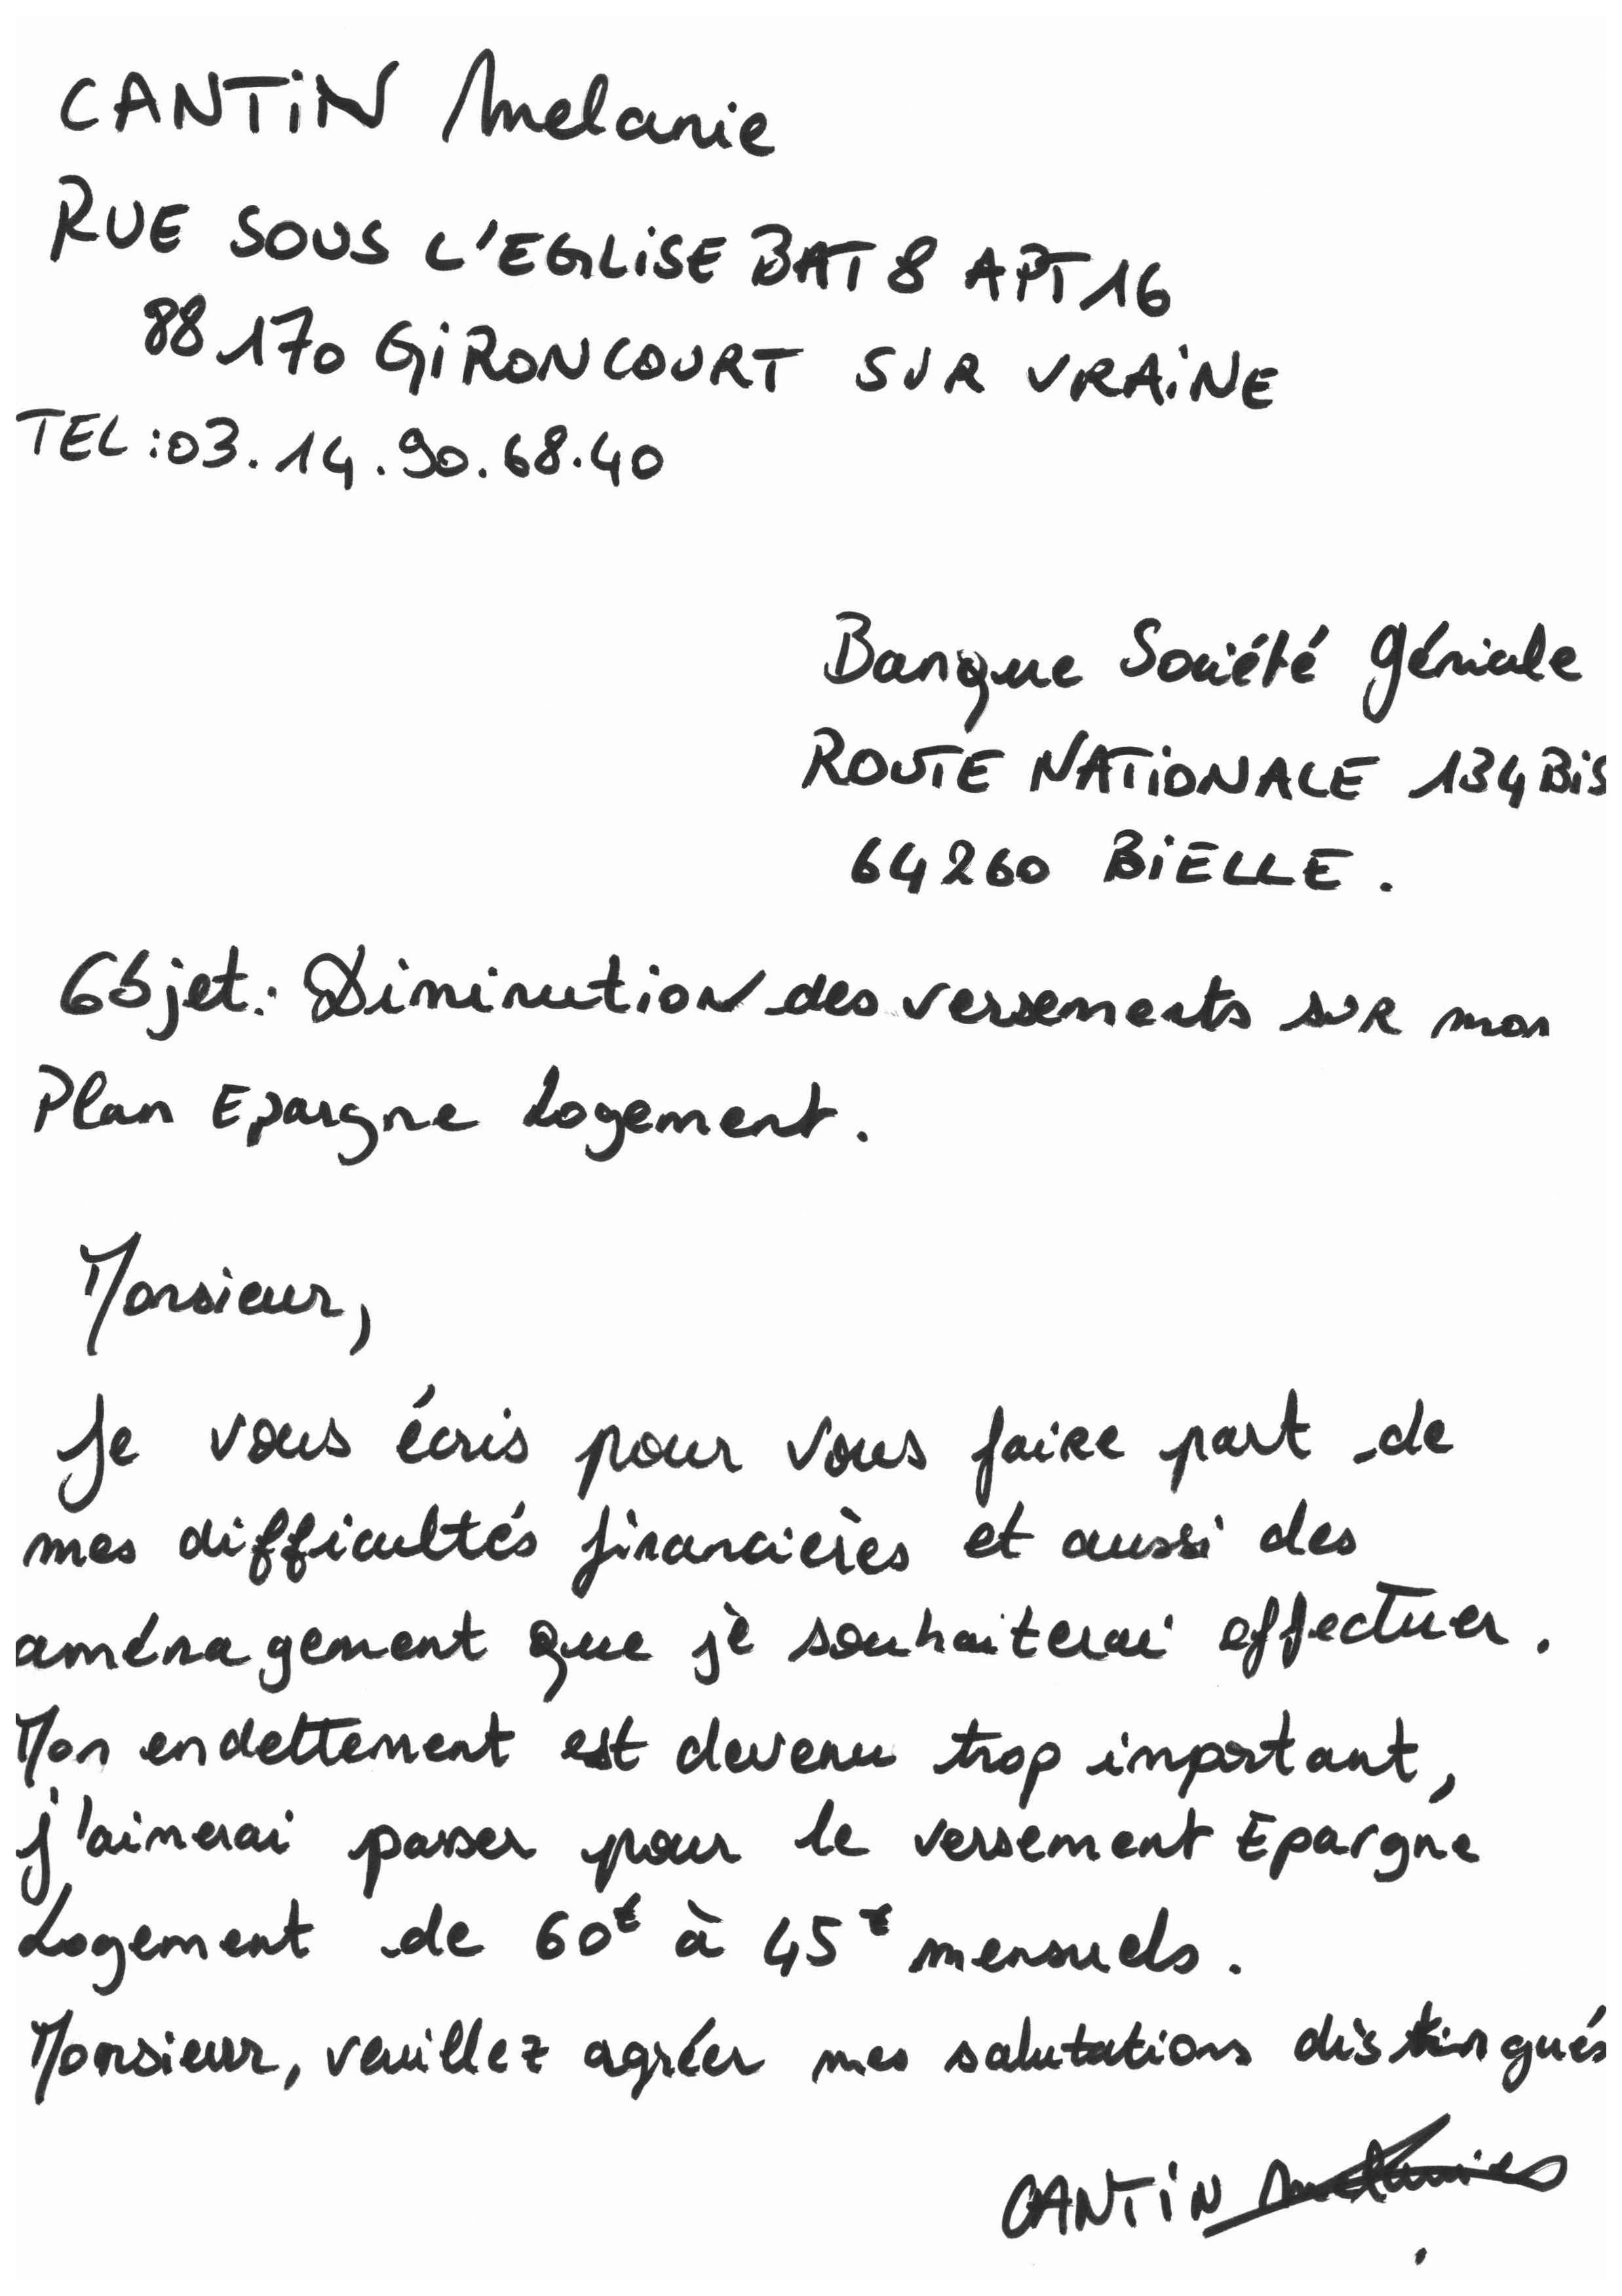 CANTiN Melanie
RUE SOUS L'EGLiSE BAT 8 APT 16
88170 GiRONCOURT SUR VRAiNE
TEL : 03.14.90.68.40
Banque Société Géniale
ROUTE NATiONALE 134 BiS
64260 BiELLE.
Objet : Diminution des versements sur mon
Plan Epargne Logement.
Monsieur,
Je vous écris pour vous faire part de
mes difficultés financières et aussi des
aménagement que je souhaiterai effectuer.
Mon endettement est devenu trop important,
j'aimerai passer pour le versement Epargne
Logement de 60€ à 45€ mensuels.
Monsieur, veuillez agréer mes salutations distingués
CANTiN Melanie